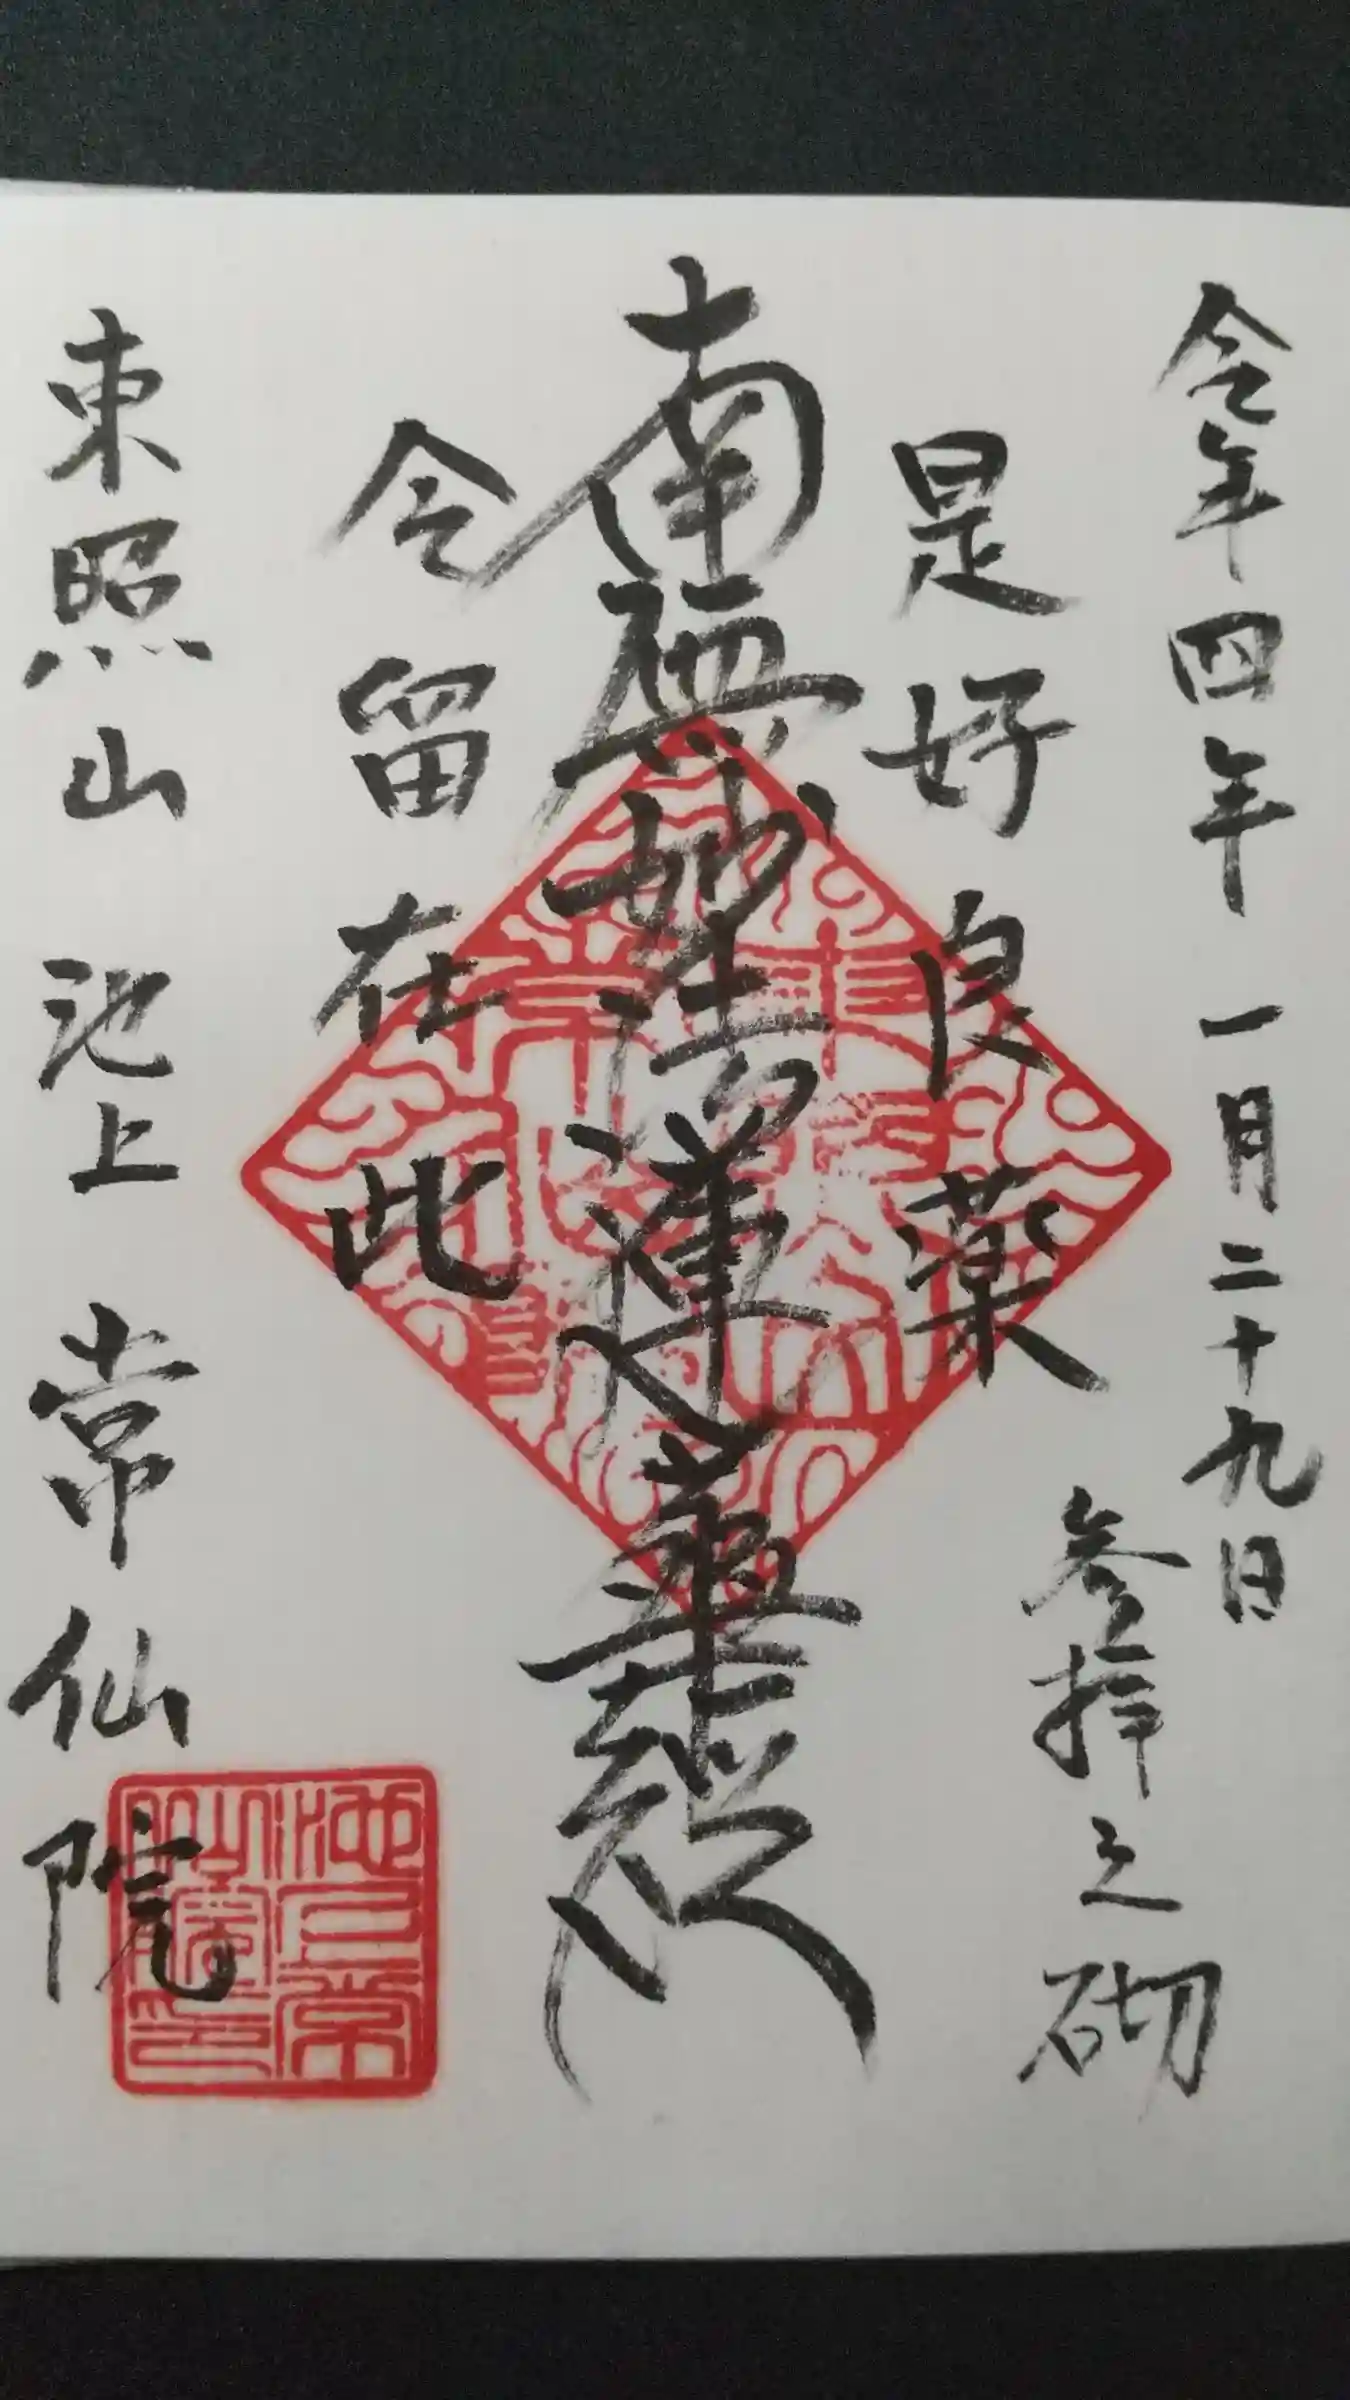 令年四年 一月二十九日
参拝之砌
是好良薬
南無妙法蓮華経
今留在此
東照山 池上 常仙院
池上常
仙院印